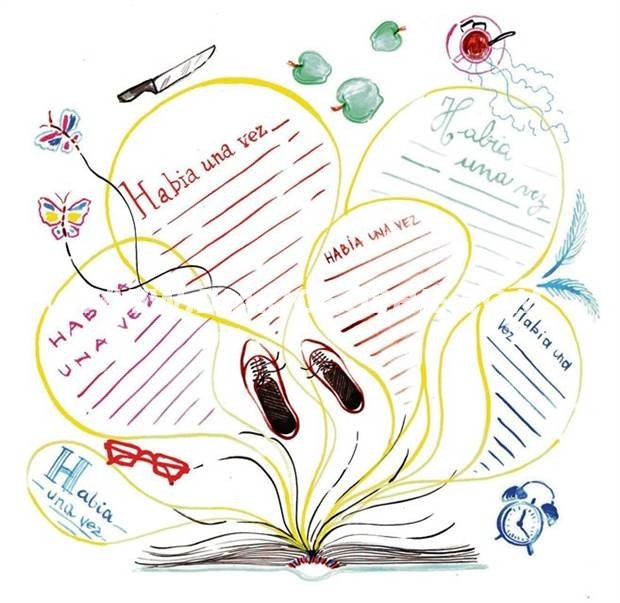 Habia una vez
Habia
una vez
HABÍA UNA VEZ
HABIA
UNA VEZ
Habia una
vez
Habia
una vez